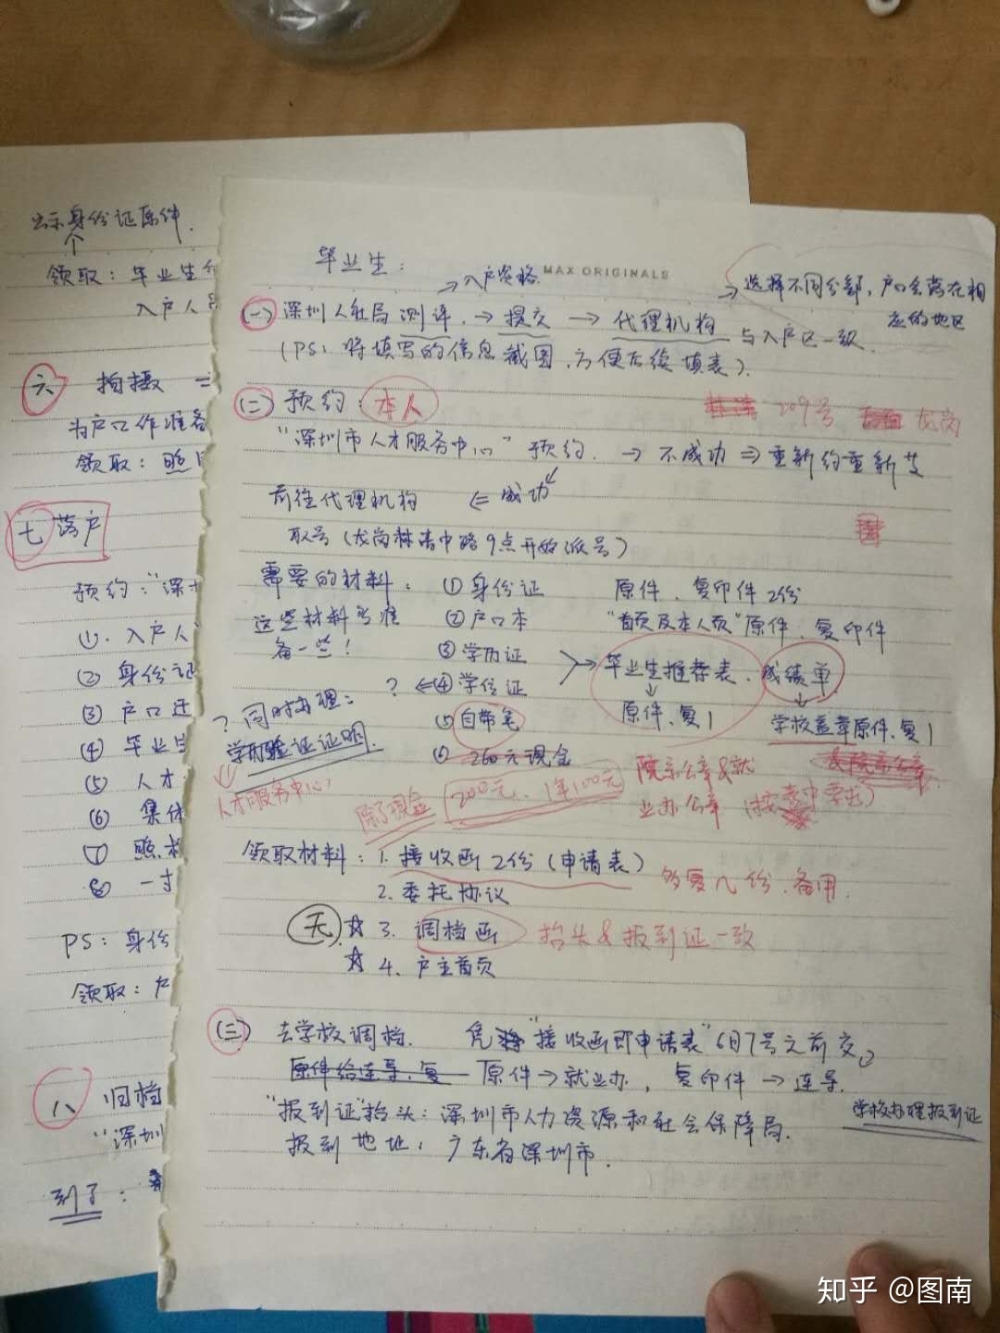 出示身份证原件.
领取：毕业生
入户人
六 拍摄
为户口作准备
领取：照
七 落户
预约："深
①. 入户人
② 身份证
③ 户口迁
④ 毕业生
⑤ 人才
⑥ 集体
⑦ 照
⑧ 一寸
PS：身份
领取：户
八 归档
"深圳
到了：
毕业生：
MAX ORIGINALS
入户资格.
选择不同分部，户口会落在相应的地区
(一) 深圳人社局测评. → 提交 → 代理机构 与入户区一致.
(PS：将填写的信息截图，方便后续填表).
(二) 预约：本人
209号 龙岗
"深圳市人才服务中心" 预约. → 不成功 ⇒ 重新约重新交
前往代理机构 ⇐ 成功
取号(龙岗 中路9点开始派号)
需要的材料： ① 身份证 原件、复印件2份
这些材料多准备一些！
② 户口本 "首页及本人页"原件、复印件
③ 学历证
④ 学位证
毕业生推荐表. 成绩单
原件、复1 学校盖章原件、复1
? 同时办理：
学历验证证明.
人才服务中心
⑤ 自带笔
⑥ 260元现金
除了现金 200元. 1年100元
院系公章&就业办公章
&院系公章
领取材料：1. 接收函2份(申请表) 多复几份、备用.
2. 委托协议
无 ☆ 3. 调档函 抬头&报到证一致
☆ 4. 户主首页
(三) 去学校调档. 凭 "接收函即申请表" 6月7号之前交
原件给连导. 复 原件→就业办，复印件→连导.
"报到证"抬头：深圳市人力资源和社会保障局.
学校办理报到证
报到地址：广东省深圳市.
知乎 @图南